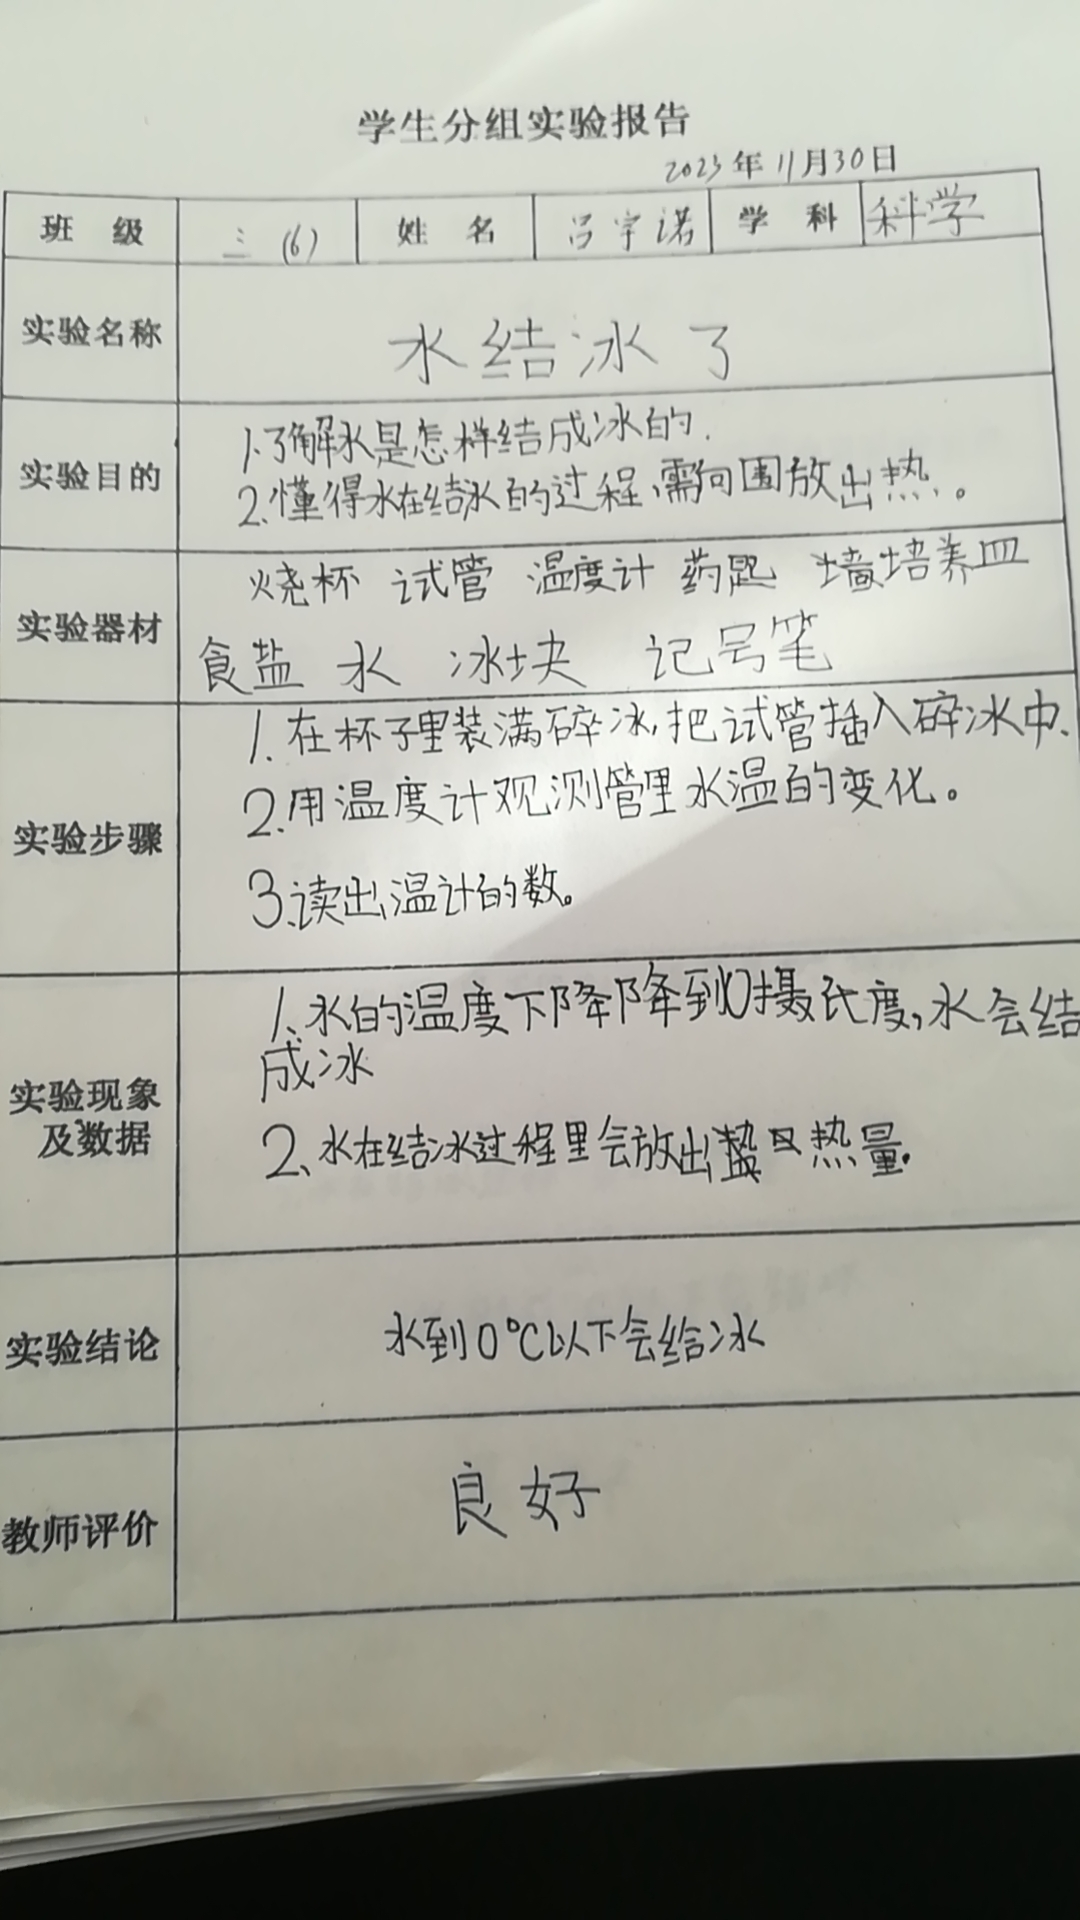 学生分组实验报告
2023年11月30日
班 级 三(6) 姓 名 吕宇诺 学 科 科学
实验名称 水结冰了
实验目的 1.了解水是怎样结成冰的.
2.懂得水在结冰的过程,需向围放出热。
实验器材 烧杯 试管 温度计 药匙 培养皿
食盐 水 冰块 记号笔
实验步骤 1.在杯子里装满碎冰,把试管插入碎冰中.
2.用温度计观测管里水温的变化。
3.读出温计的数。
实验现象及数据 1、水的温度下降降到0摄氏度,水会结
成冰
2、水在结冰过程里会放出热量.
实验结论 水到0℃以下会给冰
教师评价 良好